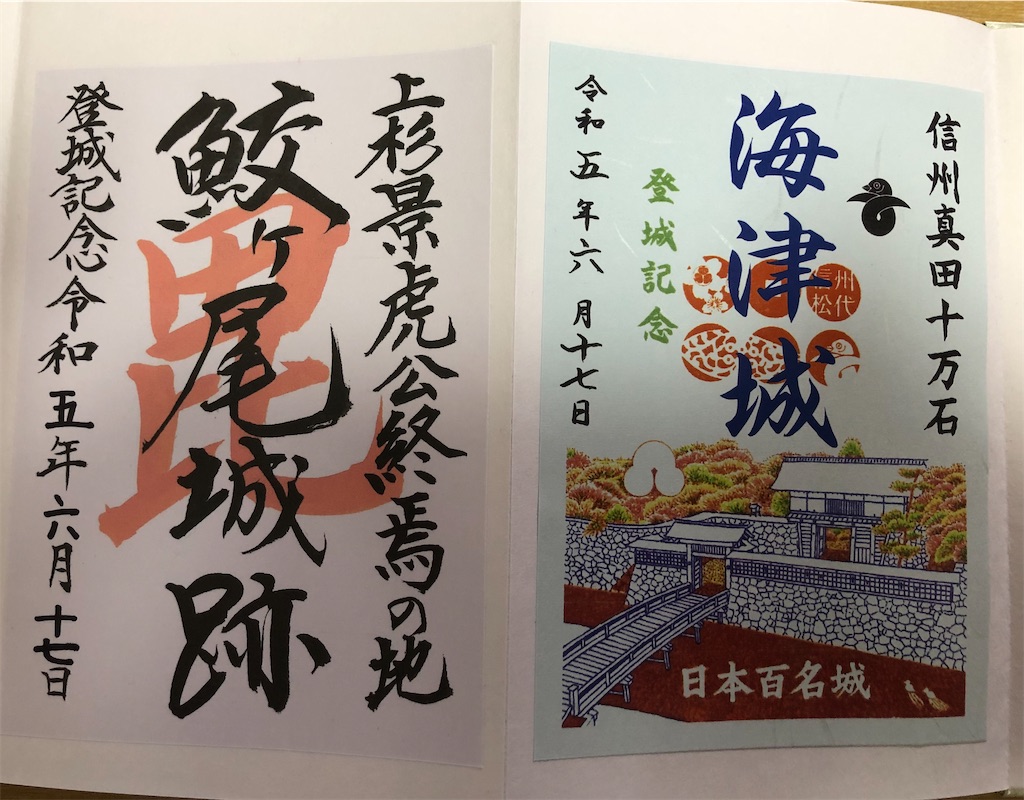 信州真田十万石
海津城
信州
松代
登城記念
令和五年六月十七日
日本百名城
上杉景虎公終焉の地
鮫ヶ尾城跡
毘
登城記念令和五年六月十七日